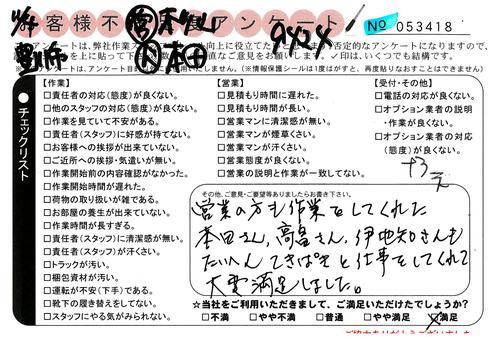 お客様不満度アンケート
№ 053418
9424
ートは、弊社作業スタッフ
向上に役立てた
否定的なアンケートになりますので、
を上に貼って下
直なご意見をお願いします。✓印は、いくつでも結構です。
※このアンケートは、アンケート目的
いたしません。（※情報保護シールは1度はがすと、再度貼りなおすことはできません）
チェックリスト
【作業】
□責任者の対応（態度）が良くない。
□他のスタッフの対応（態度）が良くない。
□作業を見ていて不安がある。
□責任者（スタッフ）に好感が持てない。
□お客様への挨拶が出来ていない。
□ご近所への挨拶・気遣いが無い。
□作業開始前の内容確認がなかった。
□作業開始時間が遅れた。
□荷物の取り扱いが雑である。
□お部屋の養生が出来ていない。
□作業時間が長すぎる。
□責任者（スタッフ）に清潔感が無い。
□責任者（スタッフ）が汗くさい。
□トラックが汚い。
□梱包資材が汚い。
□運転が不安（下手）である。
□靴下の履き替えをしてない。
□スタッフにやる気がみられない。
【営業】
□見積もり時間に遅れた。
□見積もり時間が長い。
□営業マンに清潔感が無い。
□営業マンが煙草くさい。
□営業マンが汗くさい。
□営業態度が良くない。
□営業の説明と作業が一致してない。
【受付・その他】
□電話の対応（態度）が良くない。
□オプション業者の説明
・作業が良くない。
□オプション業者の対応
（態度）が良くない。
その他、ご意見・ご要望等ありましたらお書き下さい。
営業の方も作業をしてくれた
本田さん、高畠さん、伊地知さんも
たいへんてきぱきと仕事をしてくれて
大変満足しました。
☆当社をご利用いただきまして、ご満足いただけたでしょうか？
□不満 □やや不満 □普通 □やや満足 ☑満足
ご協力ありがとうございました